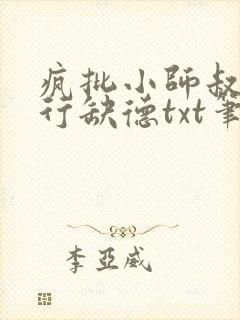 疯批小师叔
行缺德txt笔
李亚威